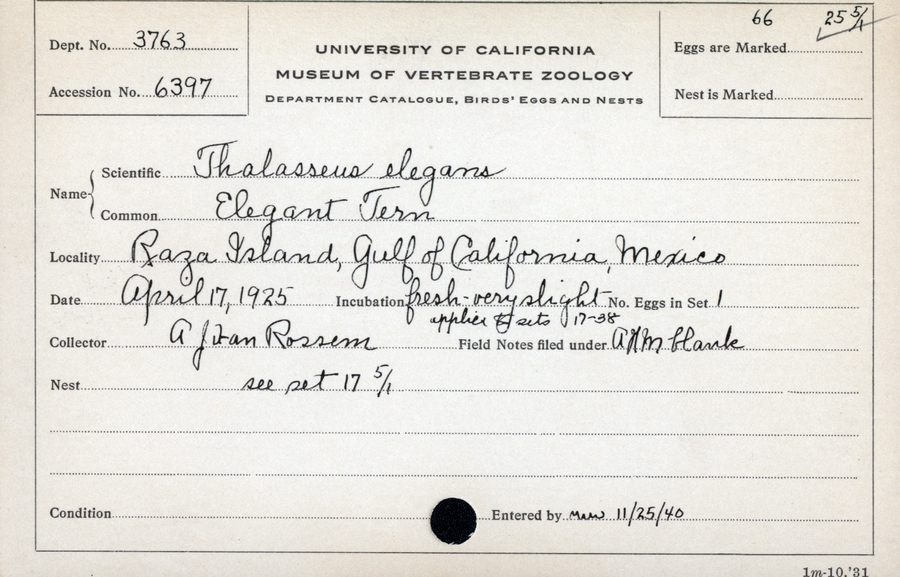 Dept. No. 3763
Accession No. 6397
UNIVERSITY OF CALIFORNIA
MUSEUM OF VERTEBRATE ZOOLOGY
DEPARTMENT CATALOGUE, BIRDS' EGGS AND NESTS
66 25 5/1
Eggs are Marked
Nest is Marked
Name
Scientific Thalasseus elegans
Common Elegant Tern
Locality Raza Island, Gulf of California, Mexico
Date April 17, 1925 Incubation fresh-very slight No. Eggs in Set 1
applies to sets 17-38
Collector A J van Rossem Field Notes filed under blank
Nest see set 17 5/1
Condition Entered by 11/25/40
1m-10,'31